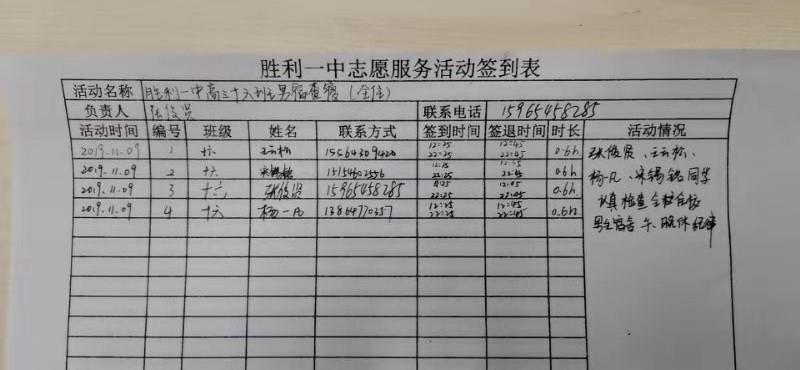 胜利一中志愿服务活动签到表
活动名称 胜利一中高三十六班男宿查寝（全体）
负责人 张俊贤 联系电话 15965458285
活动时间 编号 班级 姓名 联系方式 签到时间 签退时间 时长 活动情况
2019.11.09 1 十六 王云松 12:25 22:25 12:45 22:45 0.6h 张俊贤、王云松、
2019.11.09 2 十六 宋锡铭 22:25 22:45 0.6h 杨一凡、宋锡铭同学
2019.11.09 3 十六 张俊贤 15965458285 22:25 0.6h 认真检查全校
2019.11.09 4 十六 杨一凡 12:25 22:25 12:45 22:45 0.6h 男生宿舍午、晚休纪律